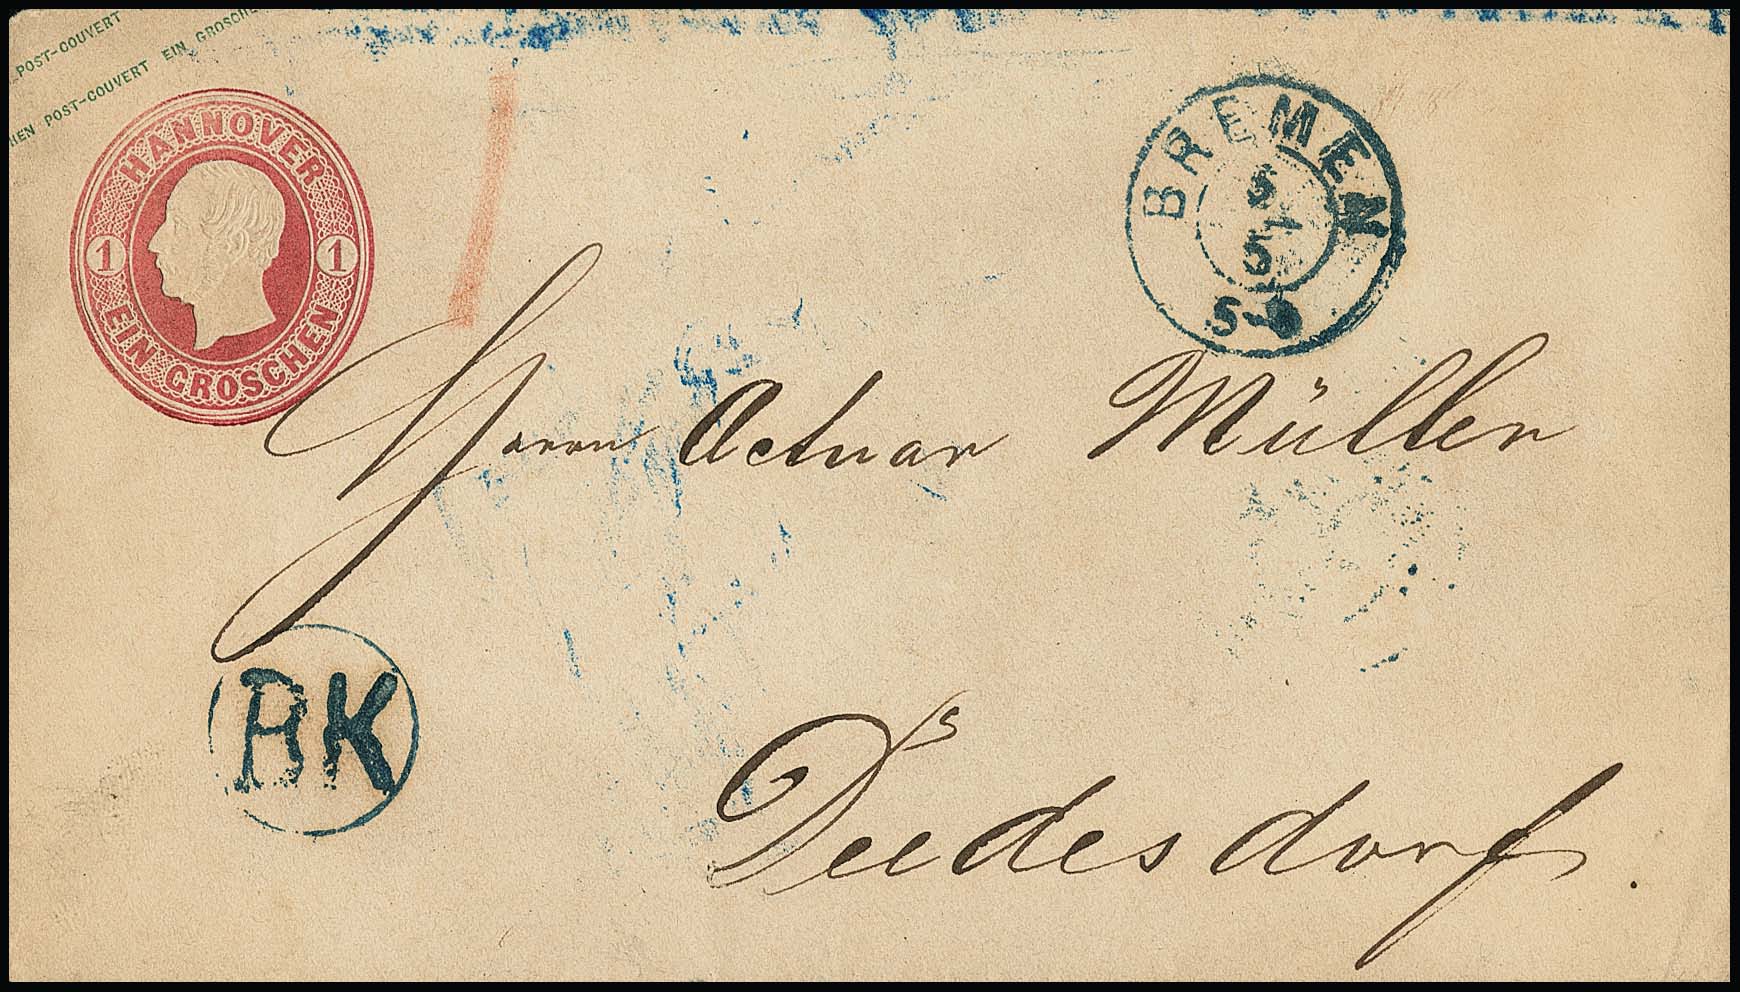 POST-COUVERT
HEN POST-COUVERT EIN GROSCHE
HANNOVER
1 1
EIN GROSCHEN
BREMEN
5
5
Herrn Actuar Müller
BK
Deedesdorf.